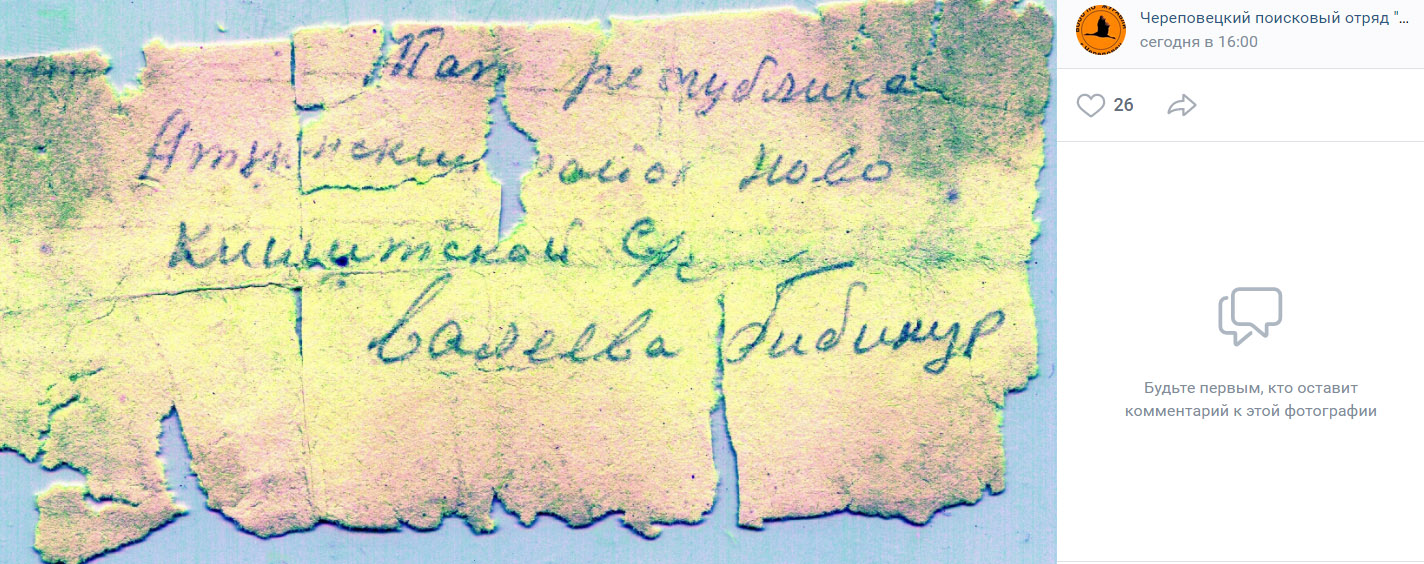 Тат республика
Атнинский район Ново
Кишитской С/с
Валеева Бибинур
Череповецкий поисковый отряд "...
сегодня в 16:00
26
Будьте первым, кто оставит
комментарий к этой фотографии